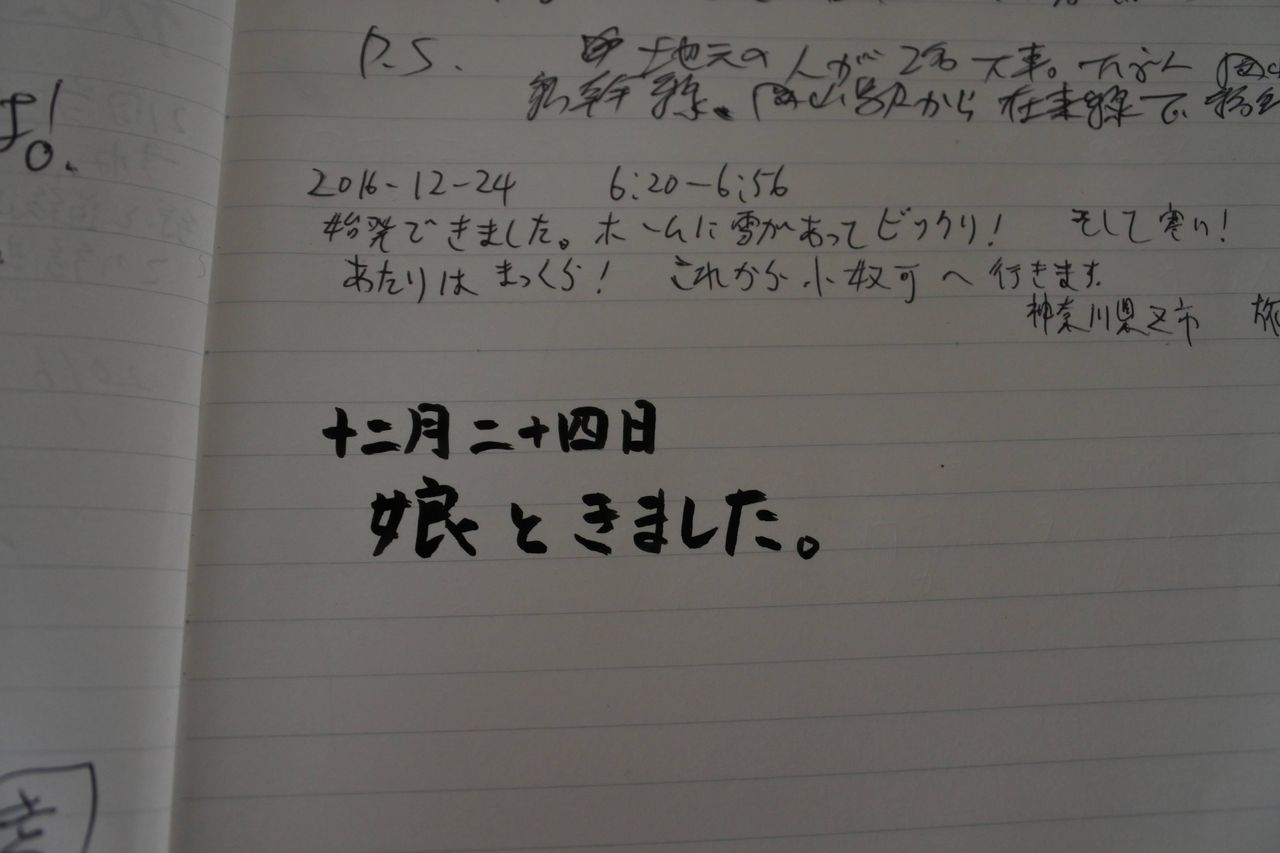 P.S. 地元の人が2名下車。
新幹線。岡山駅から在来線で、
2016-12-24 6:20-6:56
始発できました。ホームに雪があってビックリ! そして寒い!
あたりはまっくら! これから小奴可へ行きます
神奈川県 市 旅
十二月二十四日
娘ときました。